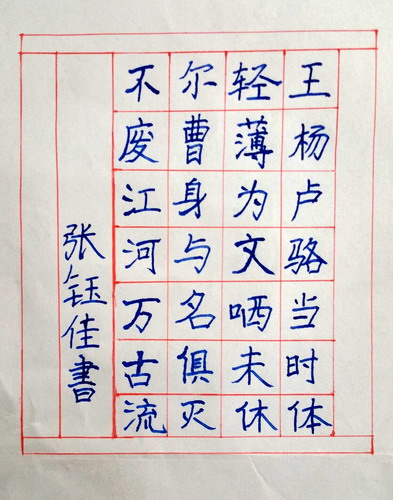 王杨卢骆当时体
轻薄为文哂未休
尔曹身与名俱灭
不废江河万古流
张钰佳書